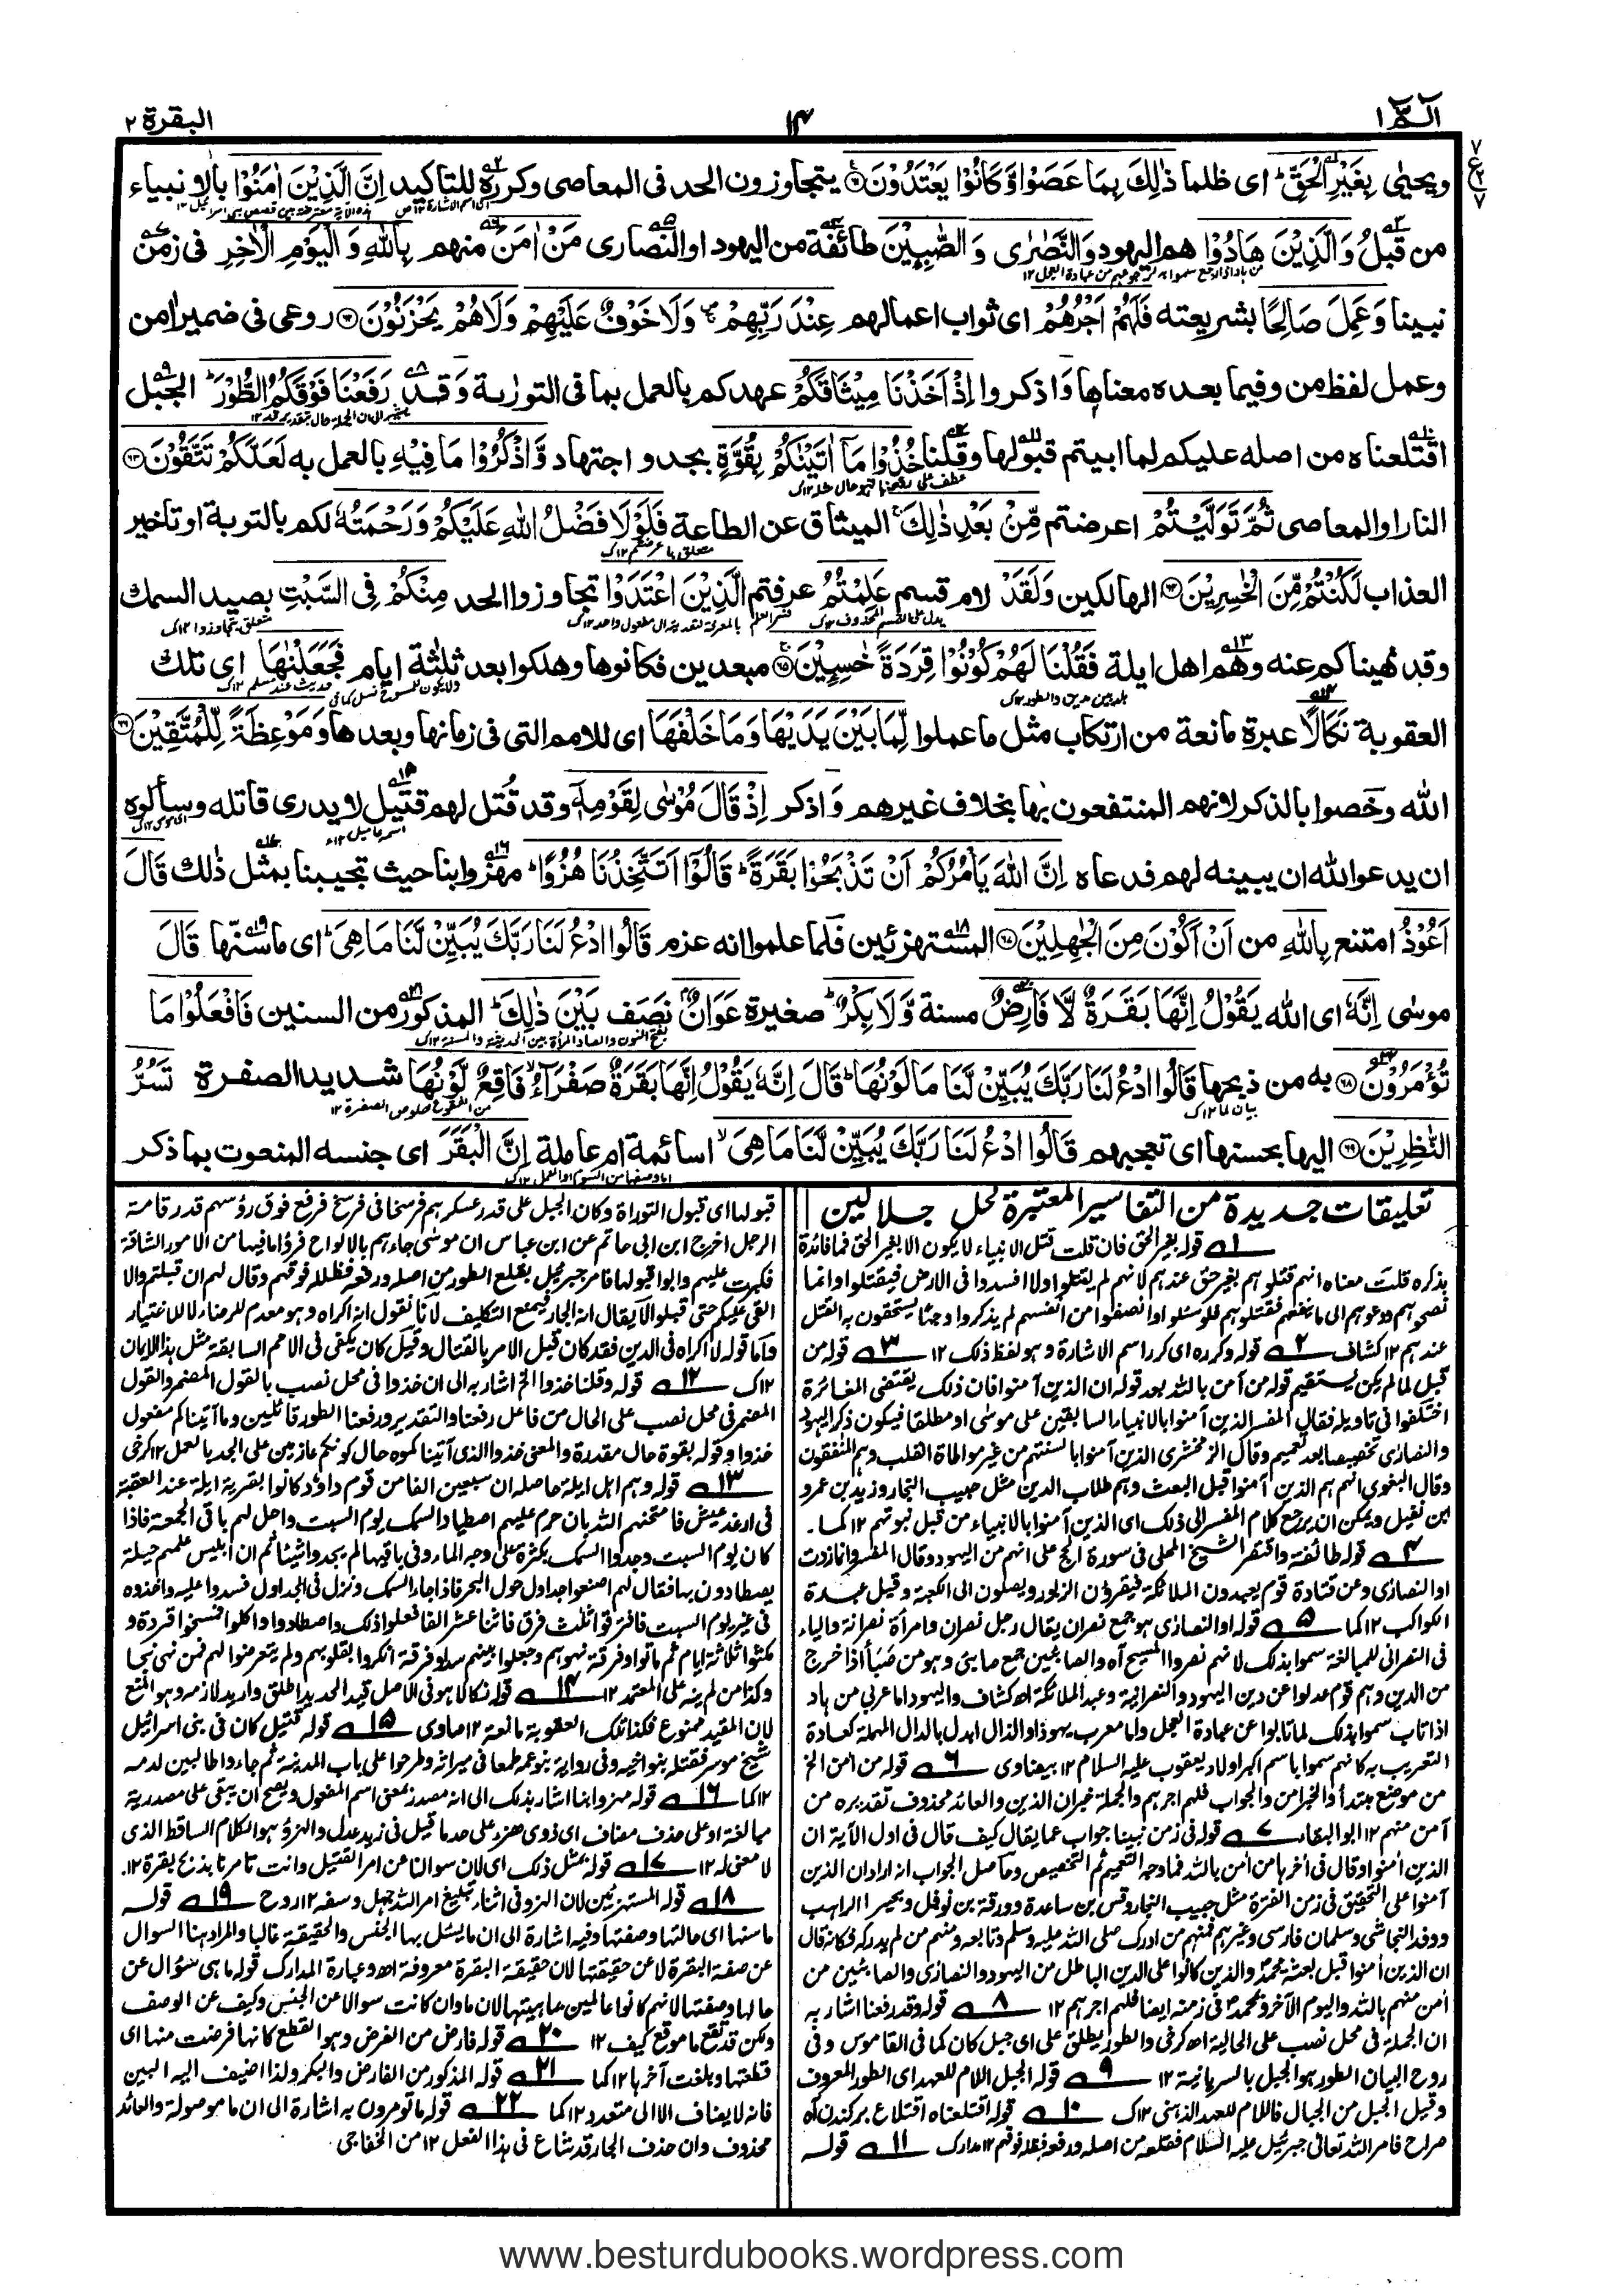 الٓمّٓ ١
١٤
البقرة ٢
ويحيٰى بِغَيْرِ الْحَقِّ اى ظلما ذٰلِكَ بِمَا عَصَوْا وَّكَانُوْا يَعْتَدُوْنَ يتجاوزون الحد فى المعاصى وكرره للتاكيد اِنَّ الَّذِيْنَ اٰمَنُوْا بالانبياء
من قبلُ وَالَّذِيْنَ هَادُوْا هم اليهود وَالنَّصٰرٰى وَالصّٰبِـِٕيْنَ طائفة من اليهود او النصارى مَنْ اٰمَنَ منهم بِاللّٰهِ وَالْيَوْمِ الْاٰخِرِ فى زمن
نبينا وَعَمِلَ صَالِحًا بشريعته فَلَهُمْ اَجْرُهُمْ اى ثواب اعمالهم عِنْدَ رَبِّهِمْ وَلَا خَوْفٌ عَلَيْهِمْ وَلَا هُمْ يَحْزَنُوْنَ روعى فى ضمير اٰمن
وعمل لفظ من وفيما بعده معناها وَ اذكروا اِذْ اَخَذْنَا مِيْثَاقَكُمْ عهدكم بالعمل بما فى التورٰىة وَ قد رَفَعْنَا فَوْقَكُمُ الطُّوْرَ الجبل
اقتلعناه من اصله عليكم لما ابيتم قبولها وقلنا خُذُوْا مَآ اٰتَيْنٰكُمْ بِقُوَّةٍ بجد واجتهاد وَّاذْكُرُوْا مَا فِيْهِ بالعمل به لَعَلَّكُمْ تَتَّقُوْنَ
النار او المعاصى ثُمَّ تَوَلَّيْتُمْ اعرضتم مِّنْۢ بَعْدِ ذٰلِكَ الميثاق عن الطاعة فَلَوْلَا فَضْلُ اللّٰهِ عَلَيْكُمْ وَرَحْمَتُهٗ لكم بالتوبة او تاخير
العذاب لَكُنْتُمْ مِّنَ الْخٰسِرِيْنَ الهالكين وَلَقَدْ لام قسم عَلِمْتُمُ عرفتم الَّذِيْنَ اعْتَدَوْا تجاوزوا الحد مِنْكُمْ فِى السَّبْتِ بصيد السمك
وقد نهيناكم عنه وهم اهل ايلة فَقُلْنَا لَهُمْ كُوْنُوْا قِرَدَةً خٰسِـِٕيْنَ مبعدين فكانوها وهلكوا بعد ثلثة ايام فَجَعَلْنٰهَا اى تلك
العقوبة نَكَالًا عبرة مانعة من ارتكاب مثل ما عملوا لِّمَا بَيْنَ يَدَيْهَا وَمَا خَلْفَهَا اى للامم التى فى زمانها وبعدها وَمَوْعِظَةً لِّلْمُتَّقِيْنَ
الله وخصوا بالذكر لانهم المنتفعون بها بخلاف غيرهم وَ اذكر اِذْ قَالَ مُوْسٰى لِقَوْمِهٖٓ وقد قُتل لهم قتيل لا يدرى قاتله وسألوه
ان يدعو الله ان يبينه لهم فدعاه اِنَّ اللّٰهَ يَاْمُرُكُمْ اَنْ تَذْبَحُوْا بَقَرَةً قَالُوْٓا اَتَتَّخِذُنَا هُزُوًا مهزوا بنا حيث تجيبنا بمثل ذلك قَالَ
اَعُوْذُ امتنع بِاللّٰهِ من اَنْ اَكُوْنَ مِنَ الْجٰهِلِيْنَ المستهزئين فلما علموا انه عزم قَالُوا ادْعُ لَنَا رَبَّكَ يُبَيِّنْ لَّنَا مَا هِىَ اى ما سنّها قَالَ
موسٰى اِنَّهٗ اى الله يَقُوْلُ اِنَّهَا بَقَرَةٌ لَّا فَارِضٌ مسنة وَّلَا بِكْرٌ صغيرة عَوَانٌۢ نَصَف بَيْنَ ذٰلِكَ المذكور من السنين فَافْعَلُوْا مَا
تُؤْمَرُوْنَ به من ذبحها قَالُوا ادْعُ لَنَا رَبَّكَ يُبَيِّنْ لَّنَا مَا لَوْنُهَا قَالَ اِنَّهٗ يَقُوْلُ اِنَّهَا بَقَرَةٌ صَفْرَآءُ فَاقِعٌ لَّوْنُهَا شديد الصفرة تَسُرُّ
النّٰظِرِيْنَ اليها بحسنها اى تعجبهم قَالُوا ادْعُ لَنَا رَبَّكَ يُبَيِّنْ لَّنَا مَا هِىَ اسائمة ام عاملة اِنَّ الْبَقَرَ اى جنسه المنعوت بما ذكر
تعليقات جديدة من التفاسير المعتبرة لحل جلالين
١ قوله بغير الحق فان قلت قتل الانبياء لا يكون الا بغير الحق فما فائدة
بذكره قلت معناه انهم قتلوهم بغير حق عندهم لانهم لم يقتلوا ولا افسدوا فى الارض فيقتلوا وانما
نصحوهم ودعوهم الى ما ينفعهم فقتلوهم فلو سئلوا وانصفوا من انفسهم لم يذكروا وجها يستحقون به القتل
عندهم ١٢ كشاف ٢ قوله وكرره اى كرر اسم الاشارة وهو لفظ ذلك ١٢ ٣ قوله من
قبل لما لم يكن يستقيم قوله من آمن بالله بعد قوله ان الذين آمنوا فان ذلك يقتضى المغائرة
اختلفوا فى تاويله فقال المفسر الذين آمنوا بالانبياء السابقين على موسى او مطلقا فيكون ذكر اليهود
والنصارى تخصيصا بعد تعميم وقال الزمخشرى الذين آمنوا بالسنتهم من غير مواطاة القلب وهم المنافقون
وقال البغوى انهم هم الذين آمنوا قبل البعث وهم طلاب الدين مثل حبيب النجار وزيد بن عمرو
ابن نفيل ويمكن ان يرجع كلام المفسر الى ذلك اى الذين آمنوا بالانبياء من قبل نبوتهم ١٢ كما۔
٤ قوله طائفة واقتصر الشيخ المحلى فى سورة الحج على انهم من اليهود وقال المفسر وانما زدت
او النصارى وعن قتادة قوم يعبدون الملائكة فيقرؤن الزبور ويصلون الى الكعبة وقيل عبدة
الكواكب ١٢ كما ٥ قوله او النصارى هو جمع نصران يقال رجل نصران وامرأة نصرانة والياء
فى النصرانى للمبالغة سموا بذلك لانهم نصروا المسيح آه والصابئين جمع صابئ وهو من صبأ اذا خرج
من الدين وهم قوم عدلوا عن دين اليهود والنصرانية وعبد الملائكة اه كشاف واليهود اما عربى من هاد
اذا تاب سموا بذلك لما تابوا عن عبادة العجل واما معرب يهوذا والذال ابدل بالدال المهملة كعادة
التعريب به كانهم سموا باسم اكبر اولاد يعقوب عليه السلام ١٢ بيضاوى ٦ قوله من آمن الخ
من موضع مبتدأ والخبر آمن والجواب فلهم اجرهم والجملة خبر ان الذين والعائد محذوف تقديره من
آمن منهم ١٢ ابو البقاء ٧ قوله فى زمن نبينا جواب عما يقال كيف قال فى اول الآية ان
الذين آمنوا وقال فى آخرها من آمن بالله فما وجه التعميم ثم التخصيص وحاصل الجواب انه اراد ان الذين
آمنوا على التحقيق فى زمن الفترة مثل حبيب النجار وقس بن ساعدة وورقة بن نوفل وبحيرا الراهب
ووفد النجاشى وسلمان فارسى وغيرهم فمنهم من ادرك صلى الله عليه وسلم وتابعه ومنهم من لم يدركه فكانه قال
ان الذين آمنوا قبل بعثة محمد والذين كانوا على الدين الباطل من اليهود والنصارى والصابئين من
آمن منهم بالله واليوم الآخر وبمحمد فى زمنه ايضا فلهم اجرهم ١٢ ٨ قوله وقد رفعنا اشار به
ان الجملة فى محل نصب على الحالية اه كرخى والطور يطلق على اى جبل كان كما فى القاموس وفى
روح البيان الطور هو الجبل بالسريانية ١٢ ٩ قوله الجبل اللام للعهد اى الطور المعروف
وقيل الجبل من الجبال فاللام للعهد الذهنى ١٢ك ١٠ قوله اقتلعناه اقتلاع بركندن اه
صراح فامر الله تعالى جبرئيل عليه السلام فقلعه من اصله ورفعه فظله فوقهم ١٢ مدارك ١١ قوله
قبولها اى قبول التوراة وكان الجبل على قدر عسكرهم فرسخا فى فرسخ فرفع فوق رؤسهم قدر قامة
الرجل اخرج ابن ابى حاتم عن ابن عباس ان موسى جاءهم بالالواح فرؤا ما فيها من الامور الشاقة
فكبرت عليهم وابوا قبولها فامر جبرئيل بقلع الطور من اصله ورفعه فظلله فوقهم وقال لهم ان قبلتم والا
القى عليكم حتى قبلوا لا يقال انه الجاء فيمنع التكليف لانا نقول انه اكراه وهو معدم للرضاء لا للاختيار
واما قوله لا اكراه فى الدين فقد كان قبل الامر بالقتال وقيل كان يكفى فى الامم السابقة مثل هذا الايمان
١٢ك ١٢ قوله وقلنا خذوا الخ اشار به الى ان خذوا فى محل نصب بالقول المضمر والقول
المضمر فى محل نصب على الحال من فاعل رفعنا والتقدير ورفعنا الطور قائلين وما آتيناكم مفعول
خذوا وقوله بقوة حال مقدرة والمعنى خذوا الذى آتيناكموه حال كونكم عازمين على الجد بالعمل ١٢ كرخى
١٣ قوله وهم اهل ايلة حاصله ان سبعين الفا من قوم داود كانوا بقرية ايلة عند العقبة
فى ارغد عيش فامتحنهم الله بان حرم عليهم اصطياد السمك يوم السبت واحل لهم باقى الجمعة فاذا
كان يوم السبت وجدوا السمك بكثرة على وجه الماء وفى باقيها لم يجدوا شيئا ثم ان ابليس علمهم حيلة
يصطادون بها فقال لهم اصنعوا جداول حول البحر فاذا جاء السمك ونزل فى الجداول فسدوا عليه واخذوه
فى غير يوم السبت فافترقوا ثلث فرق فاثنا عشر الفا فعلوا ذلك واصطادوا واكلوا فمسخوا قردة و
مكثوا ثلاثة ايام ثم ماتوا وفرقة نهوهم وجعلوا بينهم سدا وفرقة انكروا بقلوبهم ولم يتعرضوا لهم فمن نهى نجا
وكذا من لم ينه على المعتمد ١٢ ١٤ قوله نكالا هو فى الاصل قيد الحديد اطلق واريد لازمه وهو المنع
لان المقيد ممنوع فكذا تلك العقوبة مانعة ١٢ صاوى ١٥ قوله قتيل كان فى بنى اسرائيل
شيخ موسر فقتله بنو اخيه وفى رواية بنو عمه طمعا فى ميراثه وطرحوا على باب المدينة ثم جاءوا طالبين لدمه
١٢ كما ١٦ قوله مهزوا بنا اشار بذلك الى انه مصدر بمعنى اسم المفعول ويصح ان يبقى على مصدرية
مبالغة او على حذف مضاف اى ذوى هزء على حد ما قيل فى زيد عدل والهزؤ هو الكلام الساقط الذى
لا معنى له ١٢ ١٧ قوله بمثل ذلك اى لان سوالنا عن امر القتيل وانت تامرنا بذبح بقرة ١٢۔
١٨ قوله المستهزئين لان الهزو فى اثناء تبليغ امر الله جهل وسفه ١٢ روح ١٩ قوله
ما سنها اى حالتها وصفتها وفيه اشارة الى ان ما يسئل بها الجنس والحقيقة غالبا والمراد هنا السوال
عن صفة البقرة لا عن حقيقتها لان حقيقة البقرة معروفة اه وعبارة المدارك قوله ما هى سؤال عن
حالها وصفتها لانهم كانوا عالمين بماهيتها لان ما وان كانت سوالا عن الجنس وكيف عن الوصف
ولكن قد تقع ما موقع كيف ١٢ ٢٠ قوله فارض من الفرض وهو القطع كانها فرضت منها اى
قطعتها وبلغت آخرها ١٢ كما ٢١ قوله المذكور من الفارض والبكر ولذا اضيف اليه البين
فانه لا يضاف الا الى متعدد ١٢ كما ٢٢ قوله ما تومرون به اشارة الى ان ما موصولة والعائد
محذوف وان حذف الجار قد شاع فى هذا الفعل ١٢ من الخفاجى
www.besturdubooks.wordpress.com